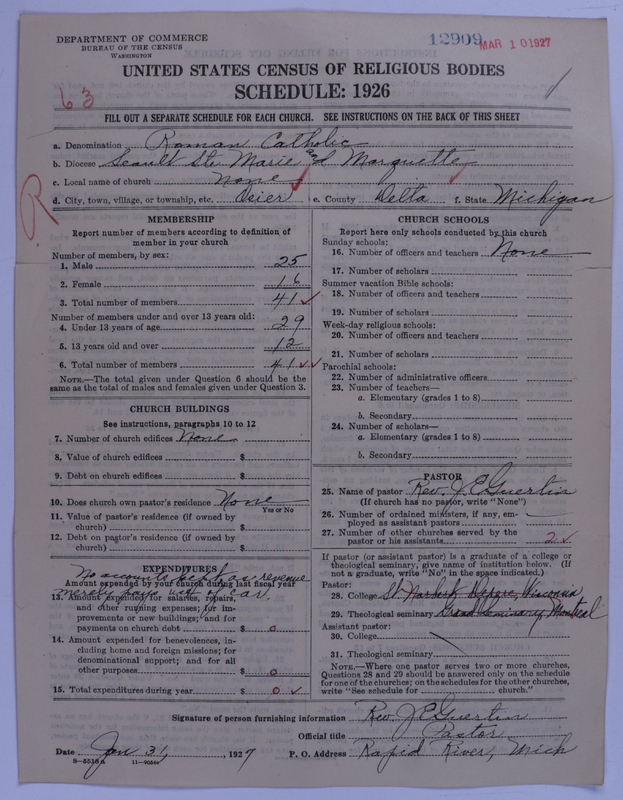 DEPARTMENT OF COMMERCE
BUREAU OF THE CENSUS
WASHINGTON
12909
MAR 10 1927
UNITED STATES CENSUS OF RELIGIOUS BODIES
SCHEDULE: 1926
63
FILL OUT A SEPARATE SCHEDULE FOR EACH CHURCH. SEE INSTRUCTIONS ON THE BACK OF THIS SHEET
a. Denomination Roman Catholic
b. Diocese Seault Ste. Marie and Marquette
c. Local name of church none
d. City, town, village, or township, etc. Osier e. County Delta f. State Michigan
R
MEMBERSHIP
Report number of members according to definition of
member in your church
Number of members, by sex:
1. Male 25
2. Female 16
3. Total number of members 41
Number of members under and over 13 years old:
4. Under 13 years of age 29
5. 13 years old and over 12
6. Total number of members 41
NOTE.—The total given under Question 6 should be the
same as the total of males and females given under Question 3.
CHURCH BUILDINGS
See instructions, paragraphs 10 to 12
7. Number of church edifices None
8. Value of church edifices $
9. Debt on church edifices $
10. Does church own pastor's residence None
Yes or No
11. Value of pastor's residence (if owned by
church) $
12. Debt on pastor's residence (if owned by
church) $
EXPENDITURES
No accounts kept as revenue
Amount expended by your church during last fiscal year
merely pays use of car.
13. Amount expended for salaries, repairs,
and other running expenses; for im-
provements or new buildings; and for
payments on church debt $ 0
14. Amount expended for benevolences, in-
cluding home and foreign missions; for
denominational support; and for all
other purposes $ 0
15. Total expenditures during year $ 0
CHURCH SCHOOLS
Report here only schools conducted by this church
Sunday schools:
16. Number of officers and teachers None
17. Number of scholars
Summer vacation Bible schools:
18. Number of officers and teachers
19. Number of scholars
Week-day religious schools:
20. Number of officers and teachers
21. Number of scholars
Parochial schools:
22. Number of administrative officers
23. Number of teachers—
a. Elementary (grades 1 to 8)
b. Secondary
24. Number of scholars—
a. Elementary (grades 1 to 8)
b. Secondary
PASTOR
25. Name of pastor Rev. J E Guertin
(If church has no pastor, write "None")
26. Number of ordained ministers, if any, em-
ployed as assistant pastors
27. Number of other churches served by the
pastor or his assistants 2
If pastor (or assistant pastor) is a graduate of a college or
theological seminary, give name of institution below. (If
not a graduate, write "No" in the space indicated.)
Pastor:
28. College St. Norbert, Depere, Wisconsin
29. Theological seminary Grand Seminary, Montreal
Assistant pastor:
30. College
31. Theological seminary
NOTE.—Where one pastor serves two or more churches,
Questions 28 and 29 should be answered only on the schedule
for one of the churches; on the schedules for the other churches,
write "See schedule for church."
Signature of person furnishing information Rev. J E Guertin
Official title Pastor
Date Jan 31, 1927 P. O. Address Rapid River, Mich
8-5518a 11-9554